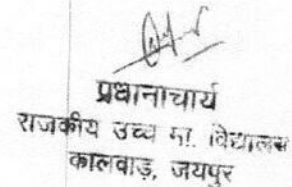 प्रधानाचार्य
राजकीय उच्च मा. विद्यालय
कालवाड़, जयपुर